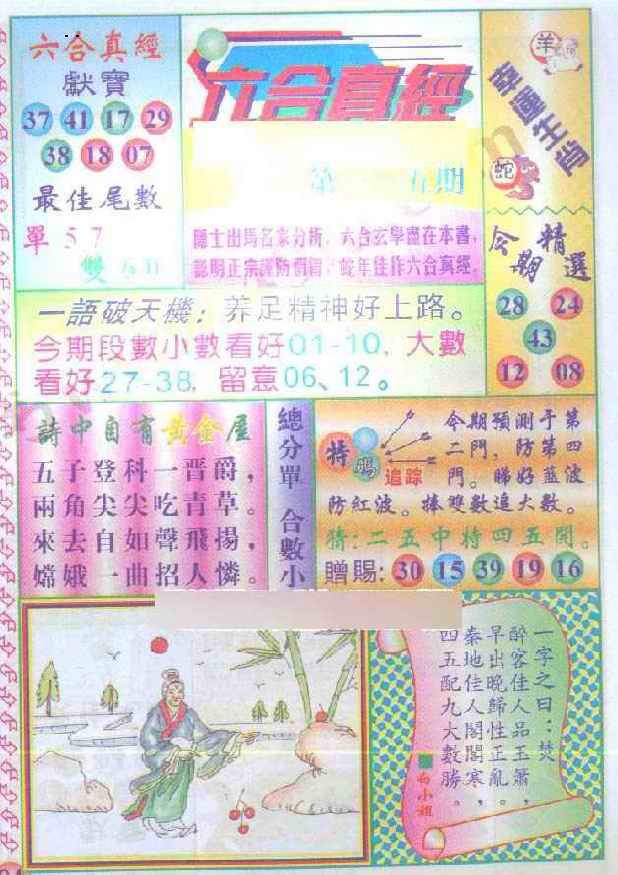 六合真經
獻寶
37 41 17 29
38 18 07
最佳尾數
單 5 7
雙
六合真經
第 五期
隱士出馬名家分析，六合玄學盡在本書，
認明正宗謹防假冒，蛇年佳作六合真經。
幸運生肖
羊
蛇
今期精選
28 24
43
12 08
一語破天機：养足精神好上路。
今期段數小數看好01-10，大數
看好27-38，留意06、12。
詩中自有黃金屋
五子登科一晋爵，
兩角尖尖吃青草。
來去自如聲飛揚，
嫦娥一曲招人憐。
總分單 合數小
特碼
追踪
今期預測于第
二門，防第四
門。睇好藍波
防紅波。捧雙數追大數。
猜：二五中特四五開。
贈賜：30 15 39 19 16
一字之曰：焚
醉客佳人品玉簫，
早出晚歸性正亂。
秦地佳人閣閣寒，
四五配九大數勝。
白小姐